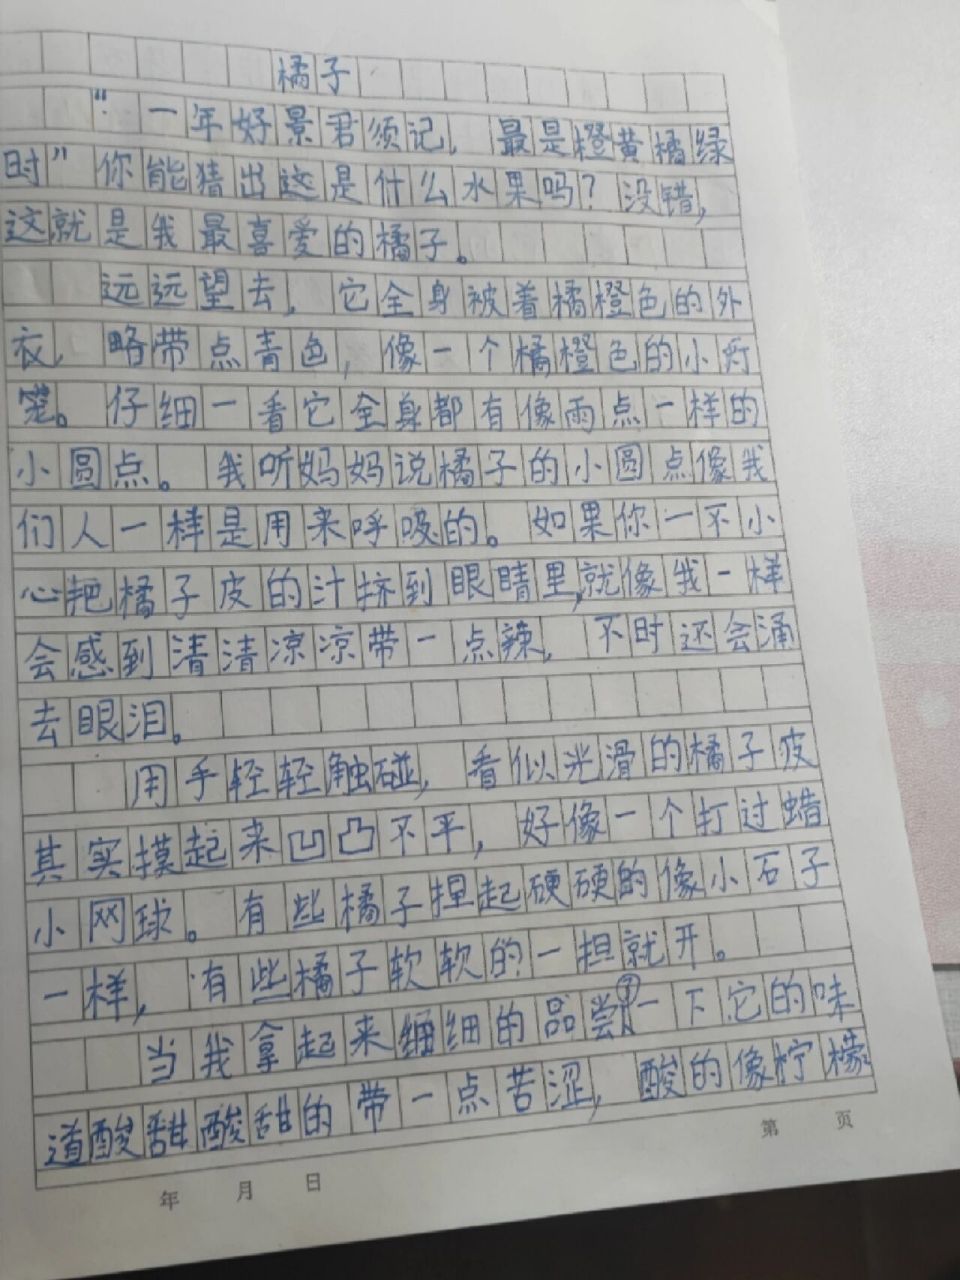 橘子
“一年好景君须记，最是橙黄橘绿
时”你能猜出这是什么水果吗？没错，
这就是我最喜爱的橘子。
远远望去，它全身被着橘橙色的外
衣，略带点青色，像一个橘橙色的小灯
笼。仔细一看它全身都有像雨点一样的
小圆点。我听妈妈说橘子的小圆点像我
们人一样是用来呼吸的。如果你一不小
心把橘子皮的汁挤到眼睛里，就像我一样
会感到清清凉凉带一点辣，不时还会涌
去眼泪。
用手轻轻触碰，看似光滑的橘子皮
其实摸起来凹凸不平，好像一个打过蜡
小网球。有些橘子捏起硬硬的像小石子
一样，有些橘子软软的一担就开。
当我拿起来细细的品尝一下它的味
道酸甜酸甜的带一点苦涩，酸的像柠檬
年 月 日
第 页